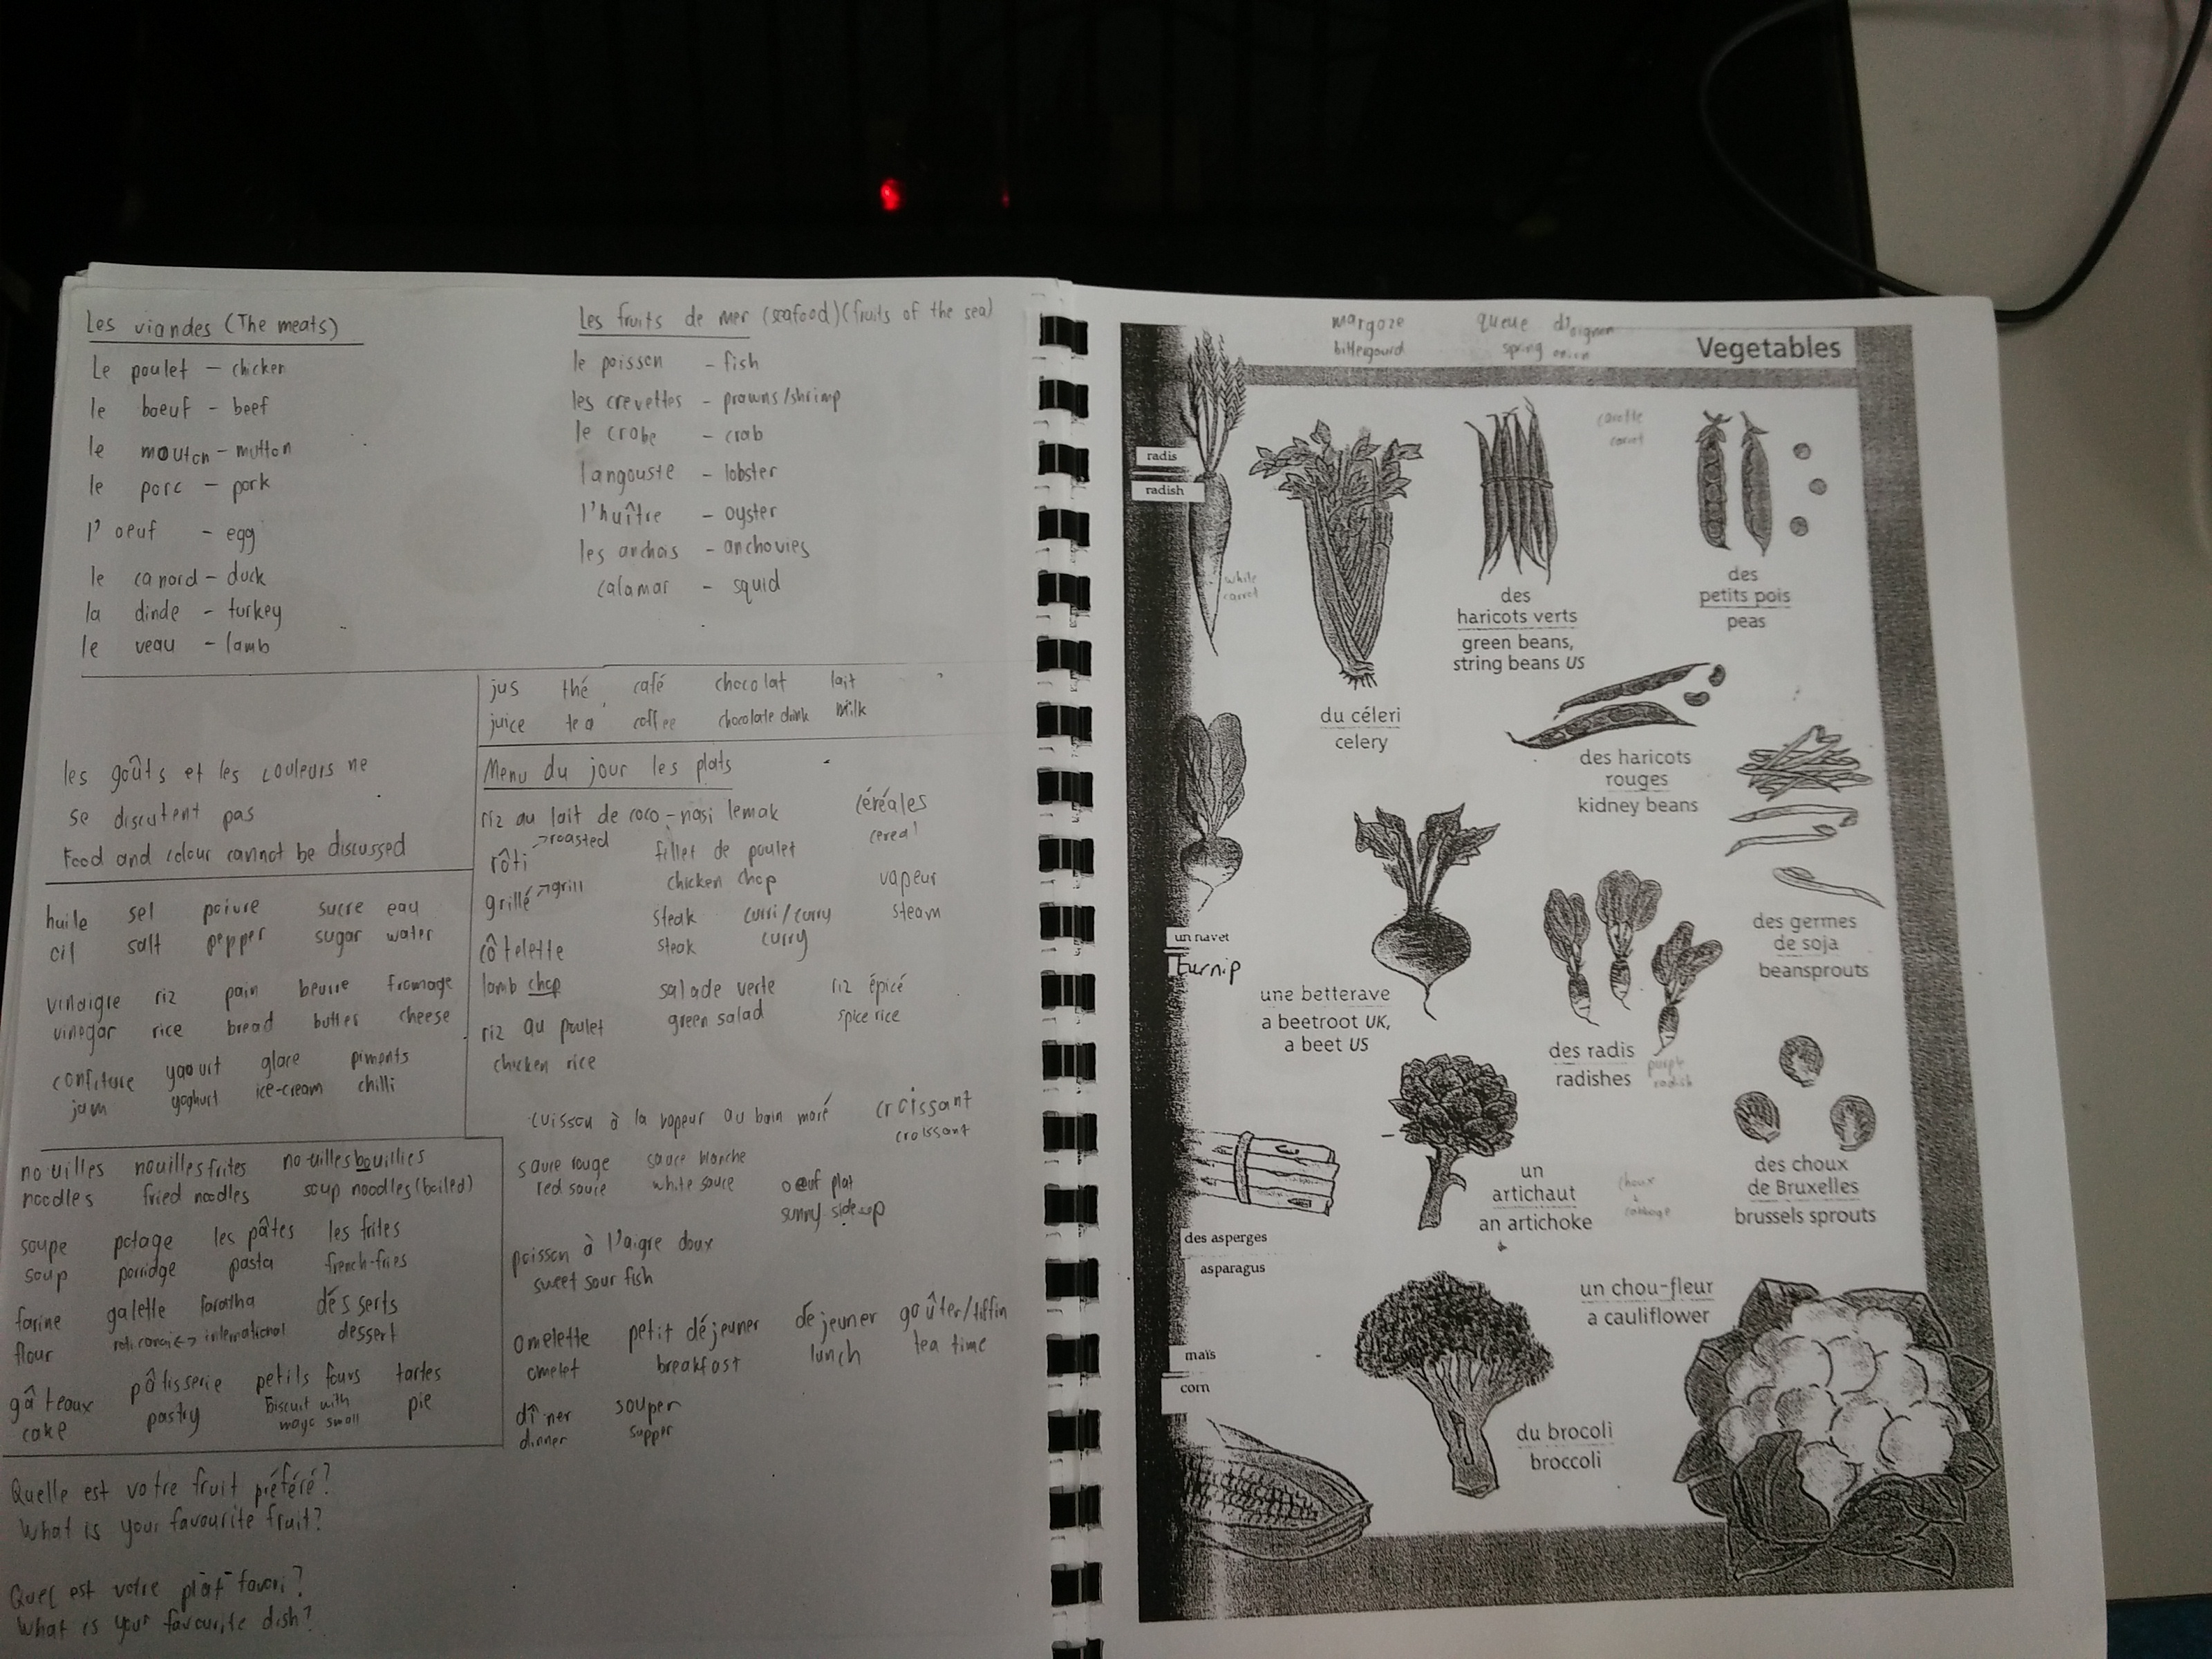 Les viandes (The meats)
Le poulet – chicken
le boeuf – beef
le mouton – mutton
le porc – pork
l'oeuf – egg
le canard – duck
la dinde – turkey
le veau – lamb
Les fruits de mer (seafood) (fruits of the sea)
le poisson – fish
les crevettes – prawns/shrimp
le crabe – crab
langouste – lobster
l'huître – oyster
les anchois – anchovies
calamar – squid
jus thé café chocolat lait
juice tea coffee chocolate drink milk
les goûts et les couleurs ne
se discutent pas
Food and colour cannot be discussed
huile sel poivre sucre eau
oil salt pepper sugar water
vinaigre riz pain beurre fromage
vinegar rice bread butter cheese
confiture yaourt glace piments
jam yoghurt ice-cream chilli
nouilles nouilles frites nouilles bouillies
noodles fried noodles soup noodles (boiled)
soupe potage les pâtes les frites
soup porridge pasta french-fries
farine galette faratha désserts
flour roti canai international dessert
gâteaux pâtisserie petits fours tartes
cake pastry Biscuit with small pie
Quelle est votre fruit préféré?
What is your favourite fruit?
Quel est votre plat favori?
What is your favourite dish?
Menu du jour les plats
riz au lait de coco – nasi lemak céréales
cereal
rôti → roasted
fillet de poulet
chicken chop
vapeur
steam
grillé → grill
steak curri/curry
steak curry
côtelette
lamb chop
salade verte riz épicé
green salad spice rice
riz au poulet
chicken rice
cuisson à la vapeur au bain maré croissant
croissant
sauce rouge sauce blanche
red sauce white sauce
oeuf plat
sunny side up
poisson à l'aigre doux
sweet sour fish
omelette petit déjeuner déjeuner goûter/tiffin
omelet breakfast lunch tea time
dîner souper
dinner supper
margoze queue d'oignon
bittergourd spring onion
Vegetables
radis
radish
white
carrot
du céleri
celery
des
haricots verts
green beans,
string beans US
carotte
carrot
des
petits pois
peas
des haricots
rouges
kidney beans
des germes
de soja
beansprouts
un navet
turnip
une betterave
a beetroot UK,
a beet US
des radis
radishes
purple
radish
des asperges
asparagus
un
artichaut
an artichoke
choux
cabbage
des choux
de Bruxelles
brussels sprouts
maïs
corn
du brocoli
broccoli
un chou-fleur
a cauliflower